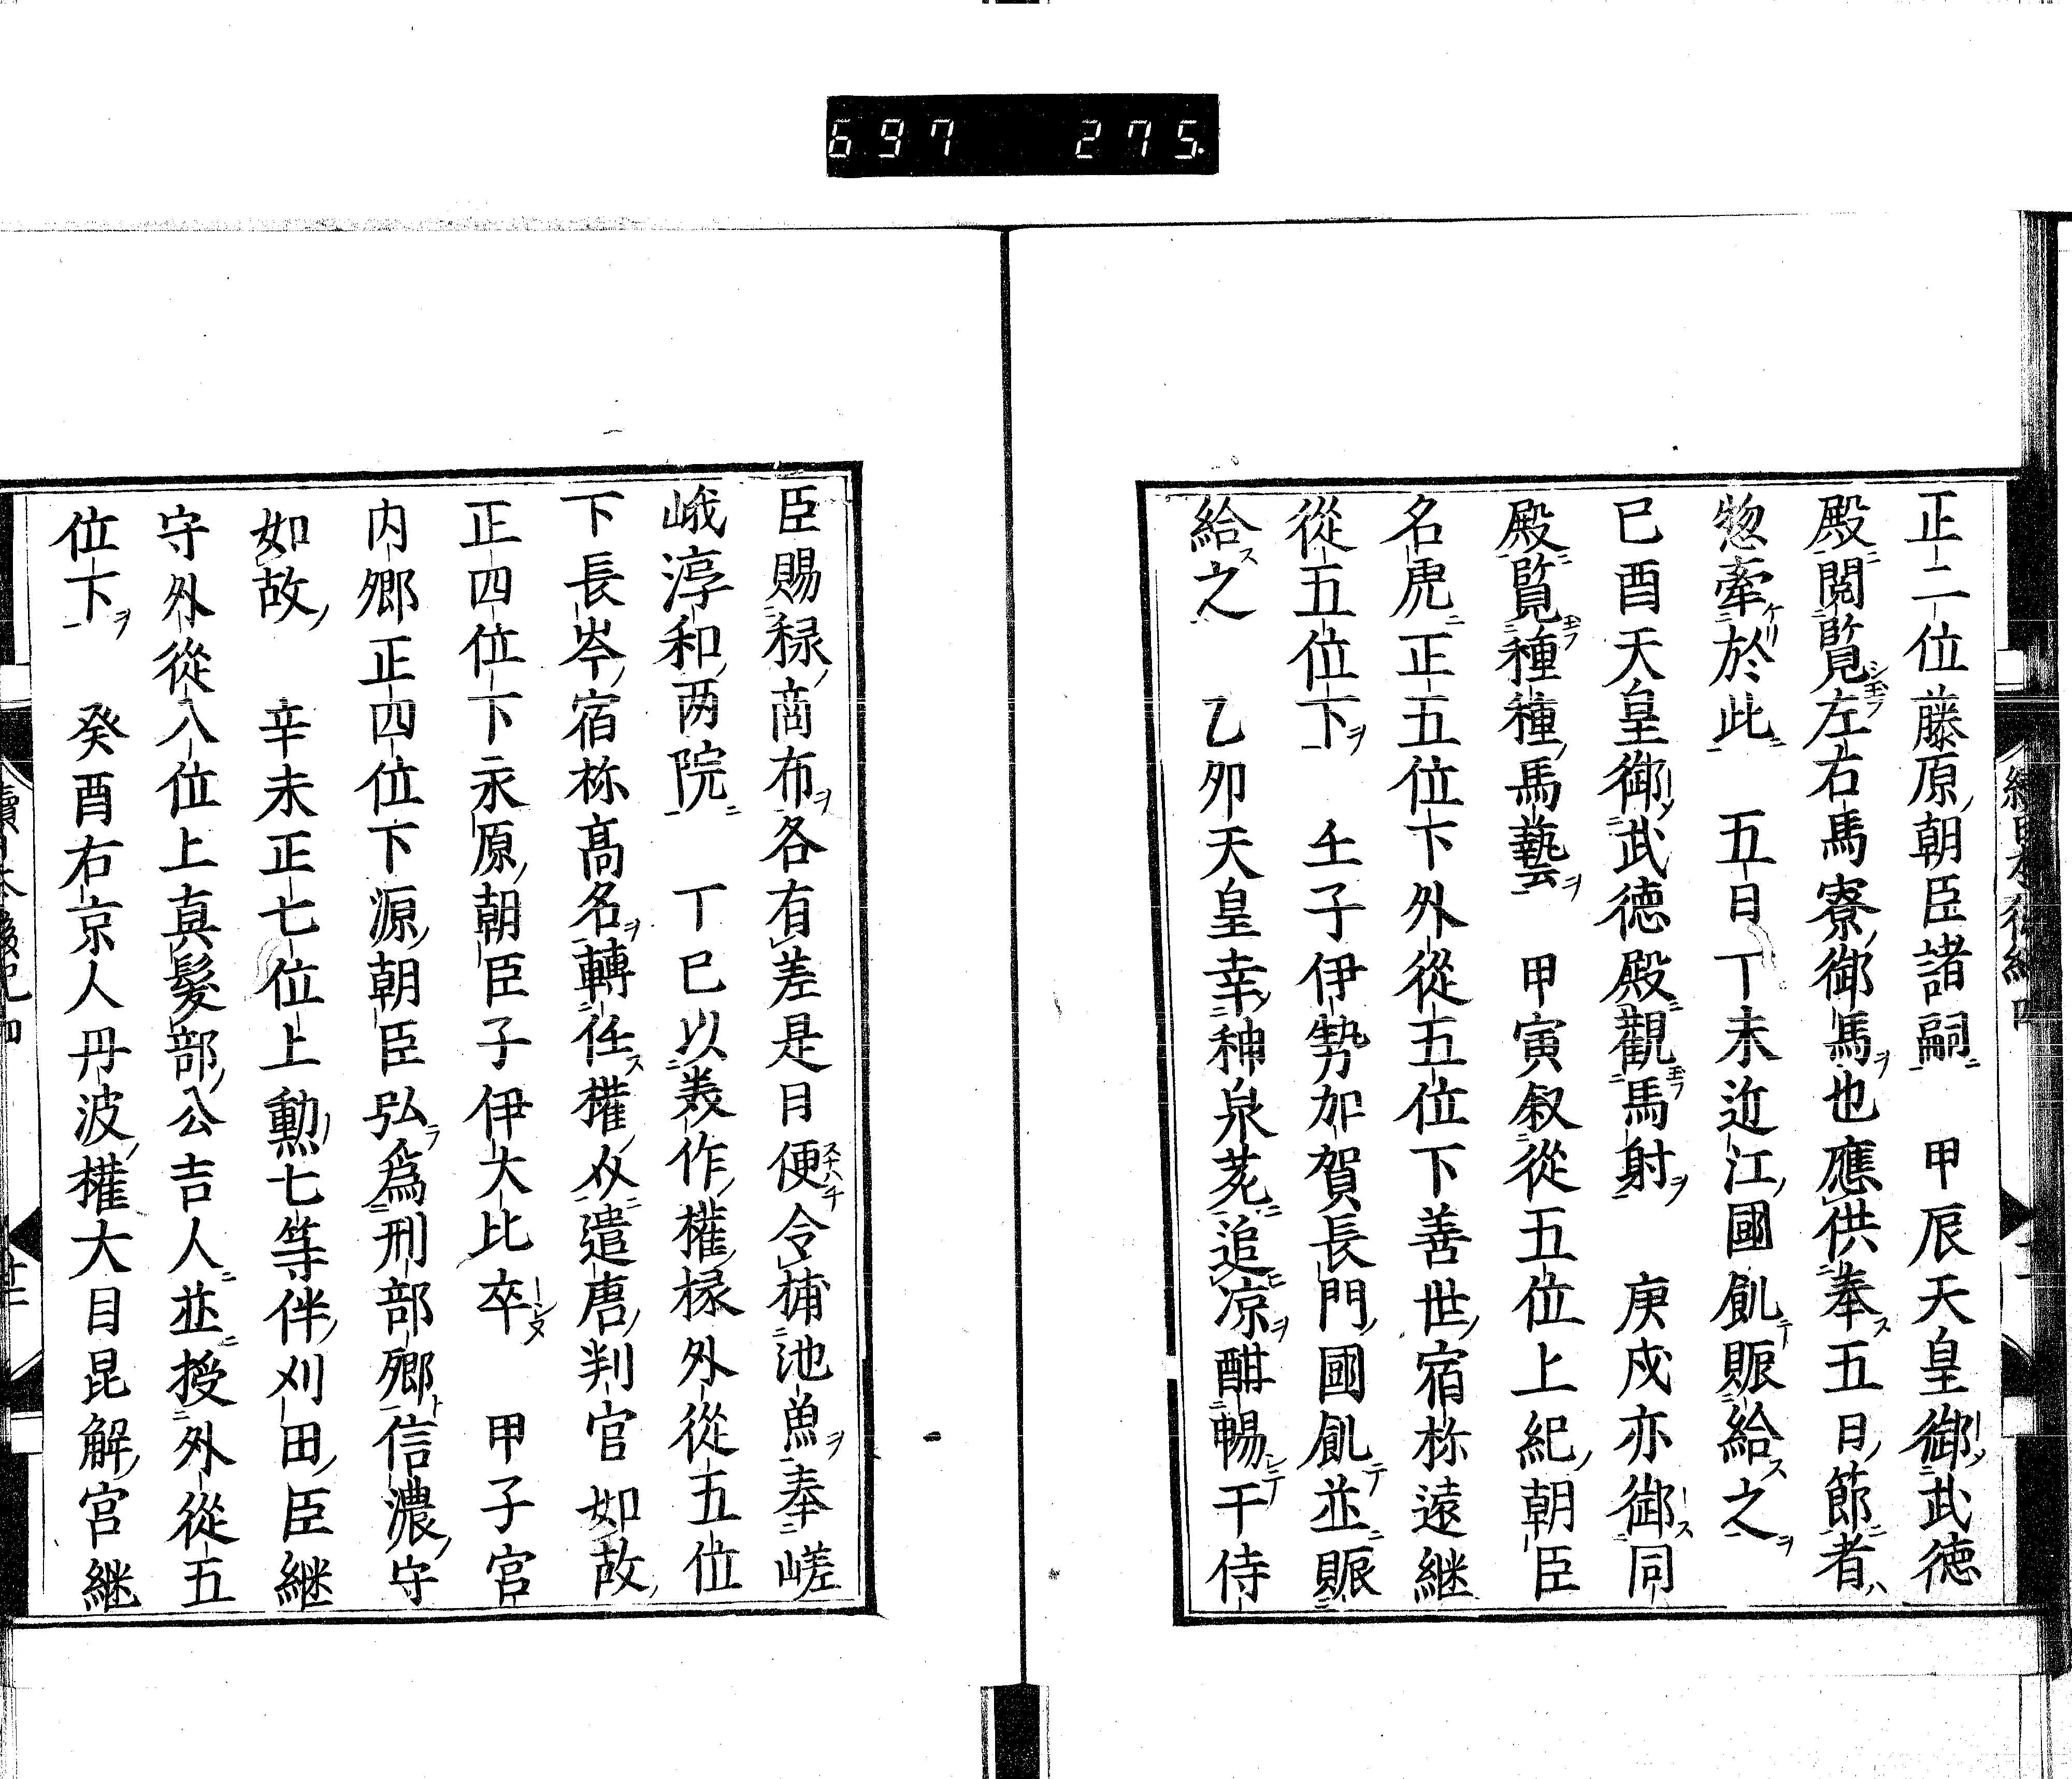 697 275
正二位藤原朝臣諸嗣 甲辰天皇御武徳
殿閲覧左右馬寮御馬也應供奉五日節者
惣牽於此 五日丁未近江國飢賑給之
已酉天皇御武徳殿觀馬射 庚戌亦御同
殿覧種種馬藝 甲寅叙從五位上紀朝臣
名虎正五位下外從五位下善世宿祢遠継
從五位下 壬子伊勢加賀長門國飢並賑
給之 乙卯天皇幸神泉苑追凉酣暢干侍
臣賜禄商布各有差是月便令捕池魚奉嵯
峨淳和两院 丁巳以美作權掾外從五位
下長岑宿祢髙名轉任權介遣唐判官如故
正四位下永原朝臣子伊大比卒 甲子宮
内卿正四位下源朝臣弘爲刑部卿信濃守
如故 辛未正七位上勳七等伴刈田臣継
守外從八位上真髮部公吉人並授外從五
位下 癸酉右京人丹波權大目昆解宮継